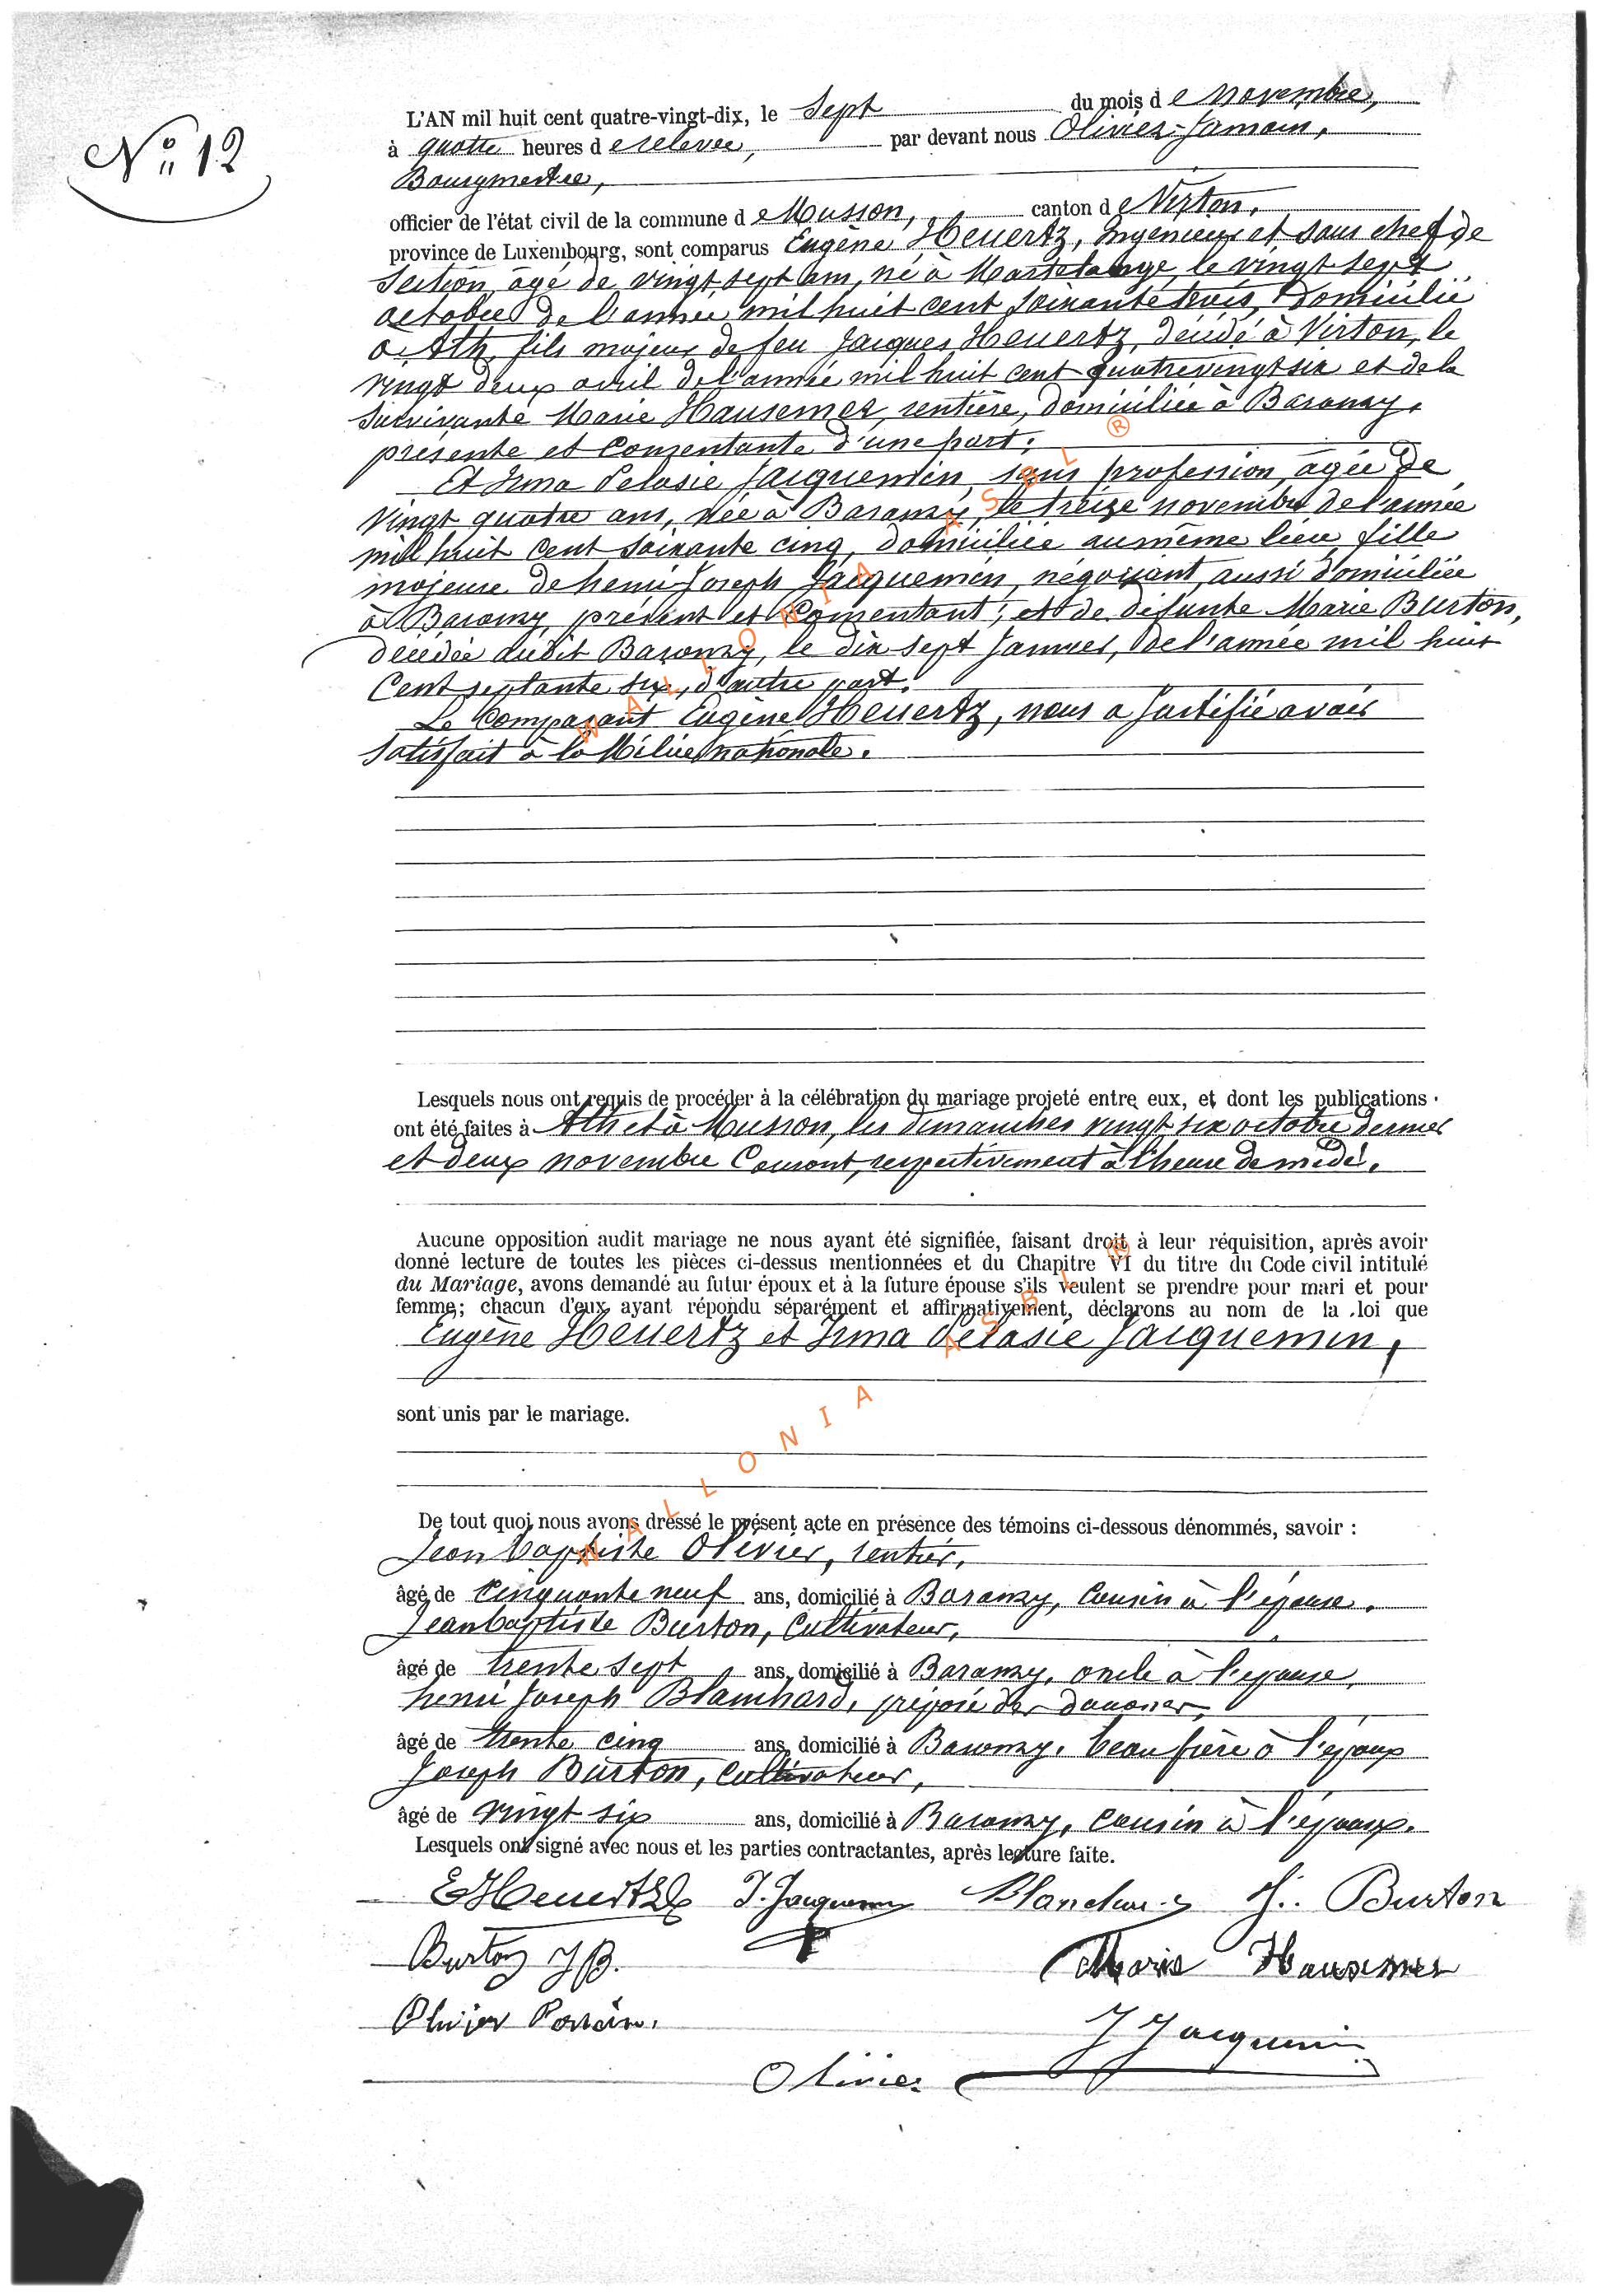 Nº 12
L'AN mil huit cent quatre-vingt-dix, le Sept du mois de novembre,
à quatre heures de relevée, par devant nous Olivier-Jamain,
Bourgmestre,
officier de l'état civil de la commune de Musson, canton de Virton,
province de Luxembourg, sont comparus Eugène Heuertz, Ingénieur et sous chef de
Section, âgé de vingt sept ans, né à Martelange, le vingt sept
octobre de l'année mil huit cent soixante trois, domicilié
à Ath, fils majeur de feu Jacques Heuertz, décédé à Virton, le
vingt deux avril de l'année mil huit cent quatrevingt six et de la
survivante Marie Hausemer, rentière, domiciliée à Baranzy,
présente et consentante d'une part;
Et Irma Pélasie Jacquemin, sans profession, agée de
vingt quatre ans, née à Baranzy, le treize novembre de l'année
mil huit cent soixante cinq, domiciliée au même lieu, fille
majeure de henri Joseph Jacquemin, négociant, aussi domicilié
à Baranzy, présent et consentant; et de défunte Marie Burton,
décédée audit Baranzy, le dix sept Janvier, de l'année mil huit
Cent septante six, d'autre part.
Le Comparant Eugène Heuertz, nous a justifié avoir
satisfait à la Milice nationale.
Lesquels nous ont requis de procéder à la célébration du mariage projeté entre eux, et dont les publications
ont été faites à Ath et à Musson, les dimanches vingt six octobre dernier
et deux novembre Courant, respectivement à l'heure de midi.
Aucune opposition audit mariage ne nous ayant été signifiée, faisant droit à leur réquisition, après avoir
donné lecture de toutes les pièces ci-dessus mentionnées et du Chapitre VI du titre du Code civil intitulé
du Mariage, avons demandé au futur époux et à la future épouse s'ils veulent se prendre pour mari et pour
femme; chacun d'eux ayant répondu séparément et affirmativement, déclarons au nom de la loi que
Eugène Heuertz et Irma Pélasie Jacquemin,
sont unis par le mariage.
De tout quoi nous avons dressé le présent acte en présence des témoins ci-dessous dénommés, savoir :
Jean Baptiste Olivier, rentier,
âgé de Cinquante neuf ans, domicilié à Baranzy, Cousin à l'épouse.
Jean baptiste Burton, Cultivateur,
âgé de trente sept ans, domicilié à Baranzy, oncle à l'épouse,
henri Joseph Blanchard, préposé des douanes,
âgé de trente cinq ans, domicilié à Baranzy, beau frère à l'époux
Joseph Burton, Cultivateur,
âgé de vingt six ans, domicilié à Baranzy, cousin à l'époux.
Lesquels ont signé avec nous et les parties contractantes, après lecture faite.
E Heuertz I. Jacquemin Blanchard J. Burton
Burton JB. Marie Hausemer
Olivier
J Jacquemin
Olivier
WALLONIA ASBL ®
WALLONIA ASBL ®